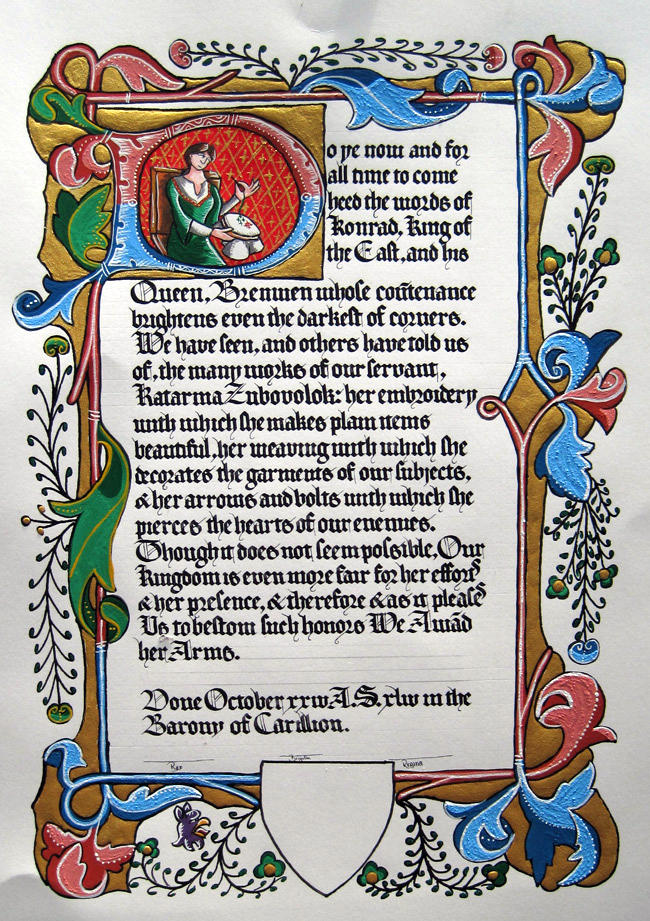 To ye now and for
all time to come
heed the words of
Konrad, King of
the East, and his
Queen, Brenwen whose coũtenance
brightens even the darkest of corners.
We have seen, and others have told us
of, the many works of our servant,
Katarina Zubovolok: her embroidery
with which she makes plain items
beautiful, her weaving with which she
decorates the garments of our subjects,
& her arrows and bolts with which she
pierces the hearts of our enemies.
Though it does not seem possible, Our
Kingdom is even more fair for her efforts
& her presence, & therefore & as it pleases
Us to bestow such honors We Awãd
her Arms.
Done October xxiv A.S. xliv in the
Barony of Carillion.
Rex Regina